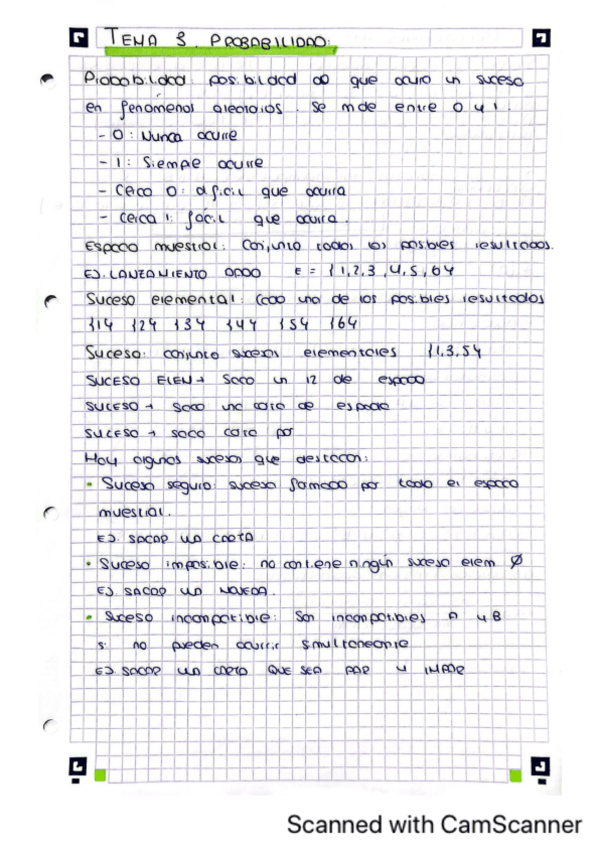 TEMA 3. PROBABILIDAD:
Probabilidad: posibilidad de que ocurra un suceso
en fenómenos aleatorios. Se mide entre 0 y 1.
- 0: Nunca ocurre
- 1: Siempre ocurre
- Cerca 0: difícil que ocurra
- cerca 1: fácil que ocurra.
Espacio muestral: Conjunto todos los posibles resultados.
EJ. LANZAMIENTO DADO E = {1,2,3,4,5,6}
Suceso elemental: Cada uno de los posibles resultados
{1} {2} {3} {4} {5} {6}
Suceso: conjunto sucesos elementales {1,3,5}
SUCESO ELEM → Saco un 12 de espada
SUCESO → saco una carta de espada
SUCESO → saco carta par
Hay algunos sucesos que destacan:
• Suceso seguro: suceso formado por todo el espacio
muestral.
EJ. SACAR UNA CARTA
• Suceso imposible: no contiene ningún suceso elem Ø
EJ SACAR UNA MONEDA.
• Suceso incompatible: Son incompatibles A y B
si no pueden ocurrir simultaneamte
EJ. SACAR UNA CARTA QUE SEA PAR Y IMPAR
Scanned with CamScanner